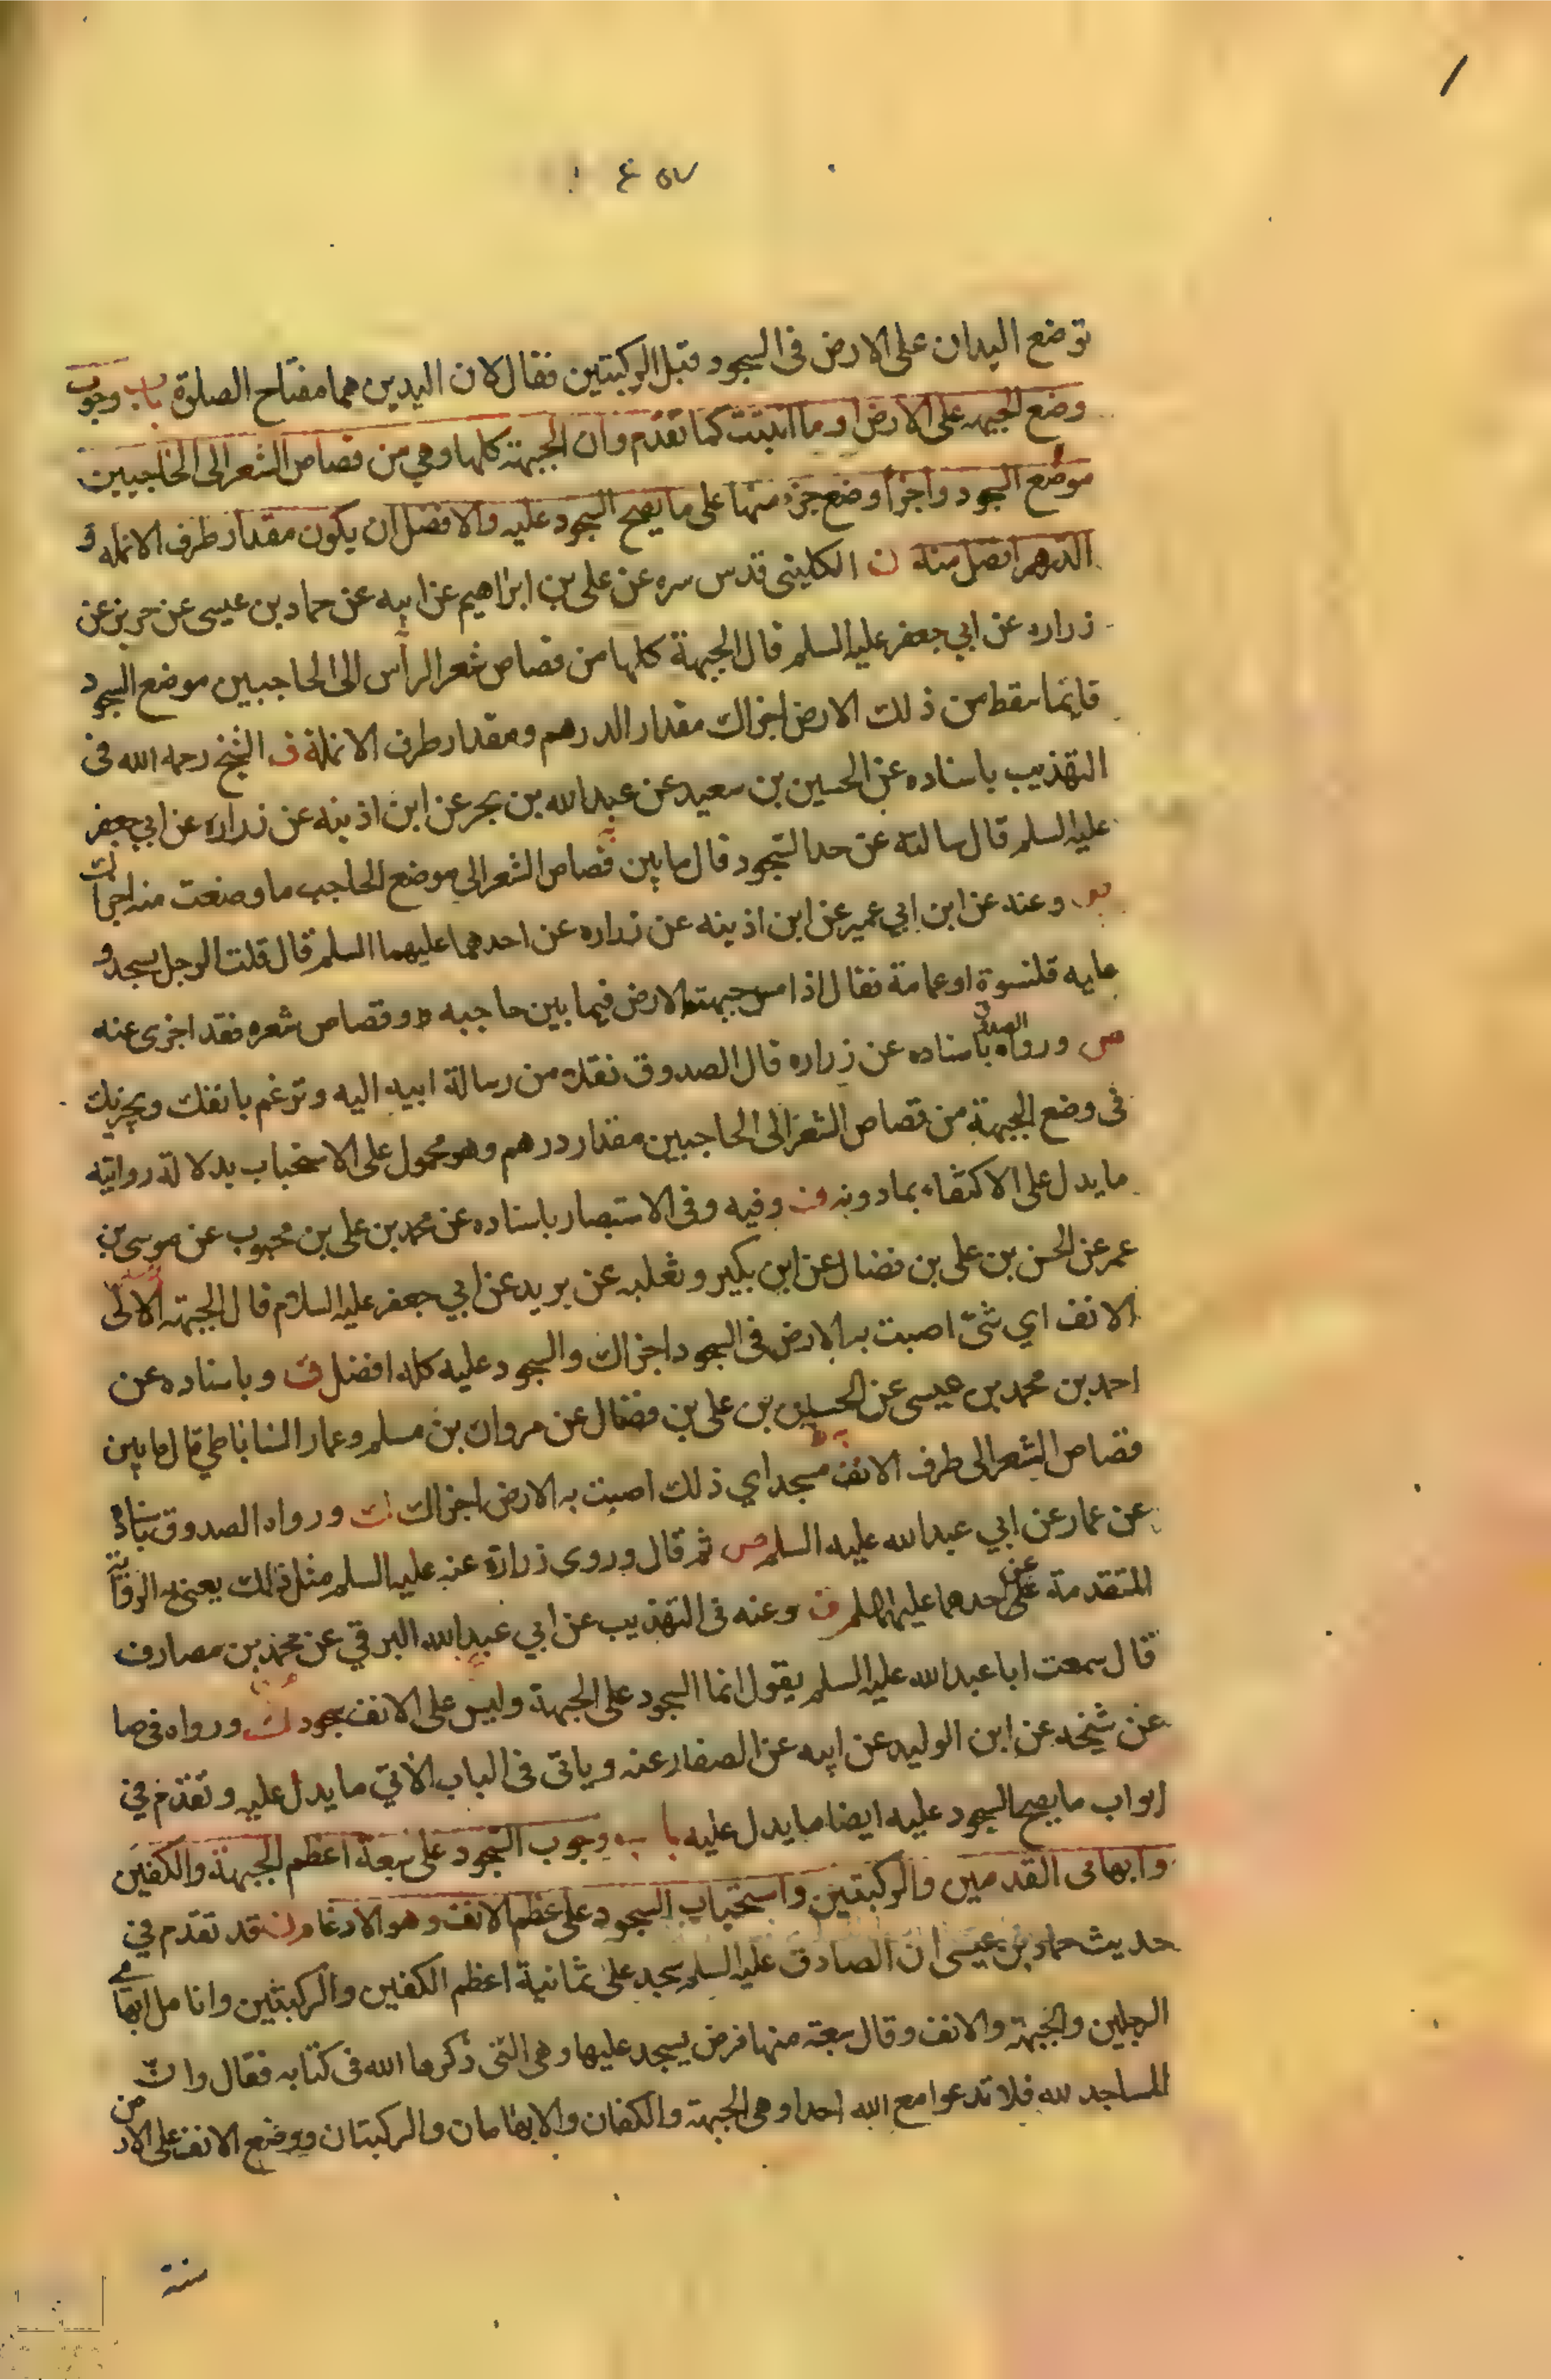 توضع اليدان على الارض فى السجود قبل الركبتين فقال لان اليدين هما مفتاح الصلوة باب وجوب
وضع الجبهه على الارض او ما انبتت كما تقدم وان الجبهة كلها وهي من قصاص الشعر الى الحاجبين
موضع السجود واجزأ وضع جزء منها على ما يصح السجود عليه والافضل ان يكون مقدار طرف الانمله و
الدرهم افضل منه ن الكلينى قدس سره عن على بن ابراهيم عن ابيه عن حماد بن عيسى عن حريز عن
زراره عن ابي جعفر عليه السلم قال الجبهة كلها من قصاص شعر الرأس الى الحاجبين موضع السجود
فايما سقط من ذلك الارض اجزاك مقدار الدرهم ومقدار طرف الانملة ف الشيخ رحمه الله فى
التهذيب باسناده عن الحسين بن سعيد عن عبد الله بن بحر عن ابن اذينه عن زراره عن ابي جعفر
عليه السلم قال سالته عن حد السجود قال ما بين قصاص الشعر الى موضع الحاجب ما وضعت منه اجزاك
وعنه عن ابن ابي عمير عن ابن اذينه عن زراره عن احدهما عليهما السلم قال قلت الرجل يسجد و
عليه قلنسوة او عمامة فقال اذا مس جبهته الارض فيما بين حاجبه وقصاص شعره فقد اجزى عنه
ص ورواه الصدوق باسناده عن زراره قال الصدوق نقلا من رسالة ابيه اليه وترغم بانفك ويجزيك
فى وضع الجبهة من قصاص الشعر الى الحاجبين مقدار درهم وهو محمول على الاستحباب بدلالة روايته
ما يدل على الاكتفاء بما دونه وفيه وفى الاستبصار باسناده عن محمد بن على بن محبوب عن موسى بن
عمر عن الحسن بن على بن فضال عن ابن بكير وثعلبه عن بريد عن ابي جعفر عليه السلام قال الجبهة الى
الانف اي شئ اصبت به الارض فى السجود اجزاك والسجود عليه كله افضل ف وباسناده عن
احمد بن محمد بن عيسى عن الحسن بن على بن فضال عن مروان بن مسلم وعمار الساباطي قال ما بين
قصاص الشعر الى طرف الانف مسجد اي ذلك اصبت به الارض اجزاك ورواه الصدوق باسناده
عن عمار عن ابي عبد الله عليه السلم ص ثم قال وروى زرارة عنه عليه السلم مثل ذلك يعنى به الرواية
المتقدمة عن احدهما عليهما السلم ف وعنه فى التهذيب عن ابي عبد الله البرقي عن محمد بن مصارف
قال سمعت ابا عبد الله عليه السلم يقول انما السجود على الجبهة وليس على الانف سجود ورواه فى صا
عن شيخه عن ابن الوليد عن ابيه عن الصفار عنه وياتى فى الباب الاتي ما يدل عليه وتقدم في
ابواب ما يصح السجود عليه ايضا ما يدل عليه باب وجوب السجود على سبعة اعظم الجبهة والكفين
وابهامى القدمين والركبتين واستحباب السجود على عظم الانف وهو الارغام قد تقدم في
حديث حماد بن عيسى ان الصادق عليه السلم سجد على ثمانية اعظم الكفين والركبتين وانامل ابهامي
الرجلين والجبهة والانف وقال سبعة منها فرض يسجد عليها وهى التى ذكرها الله فى كتابه فقال وان
المساجد لله فلا تدعوا مع الله احدا وهى الجبهة والكفان والابهامان والركبتان ووضع الانف على الارض
سنة